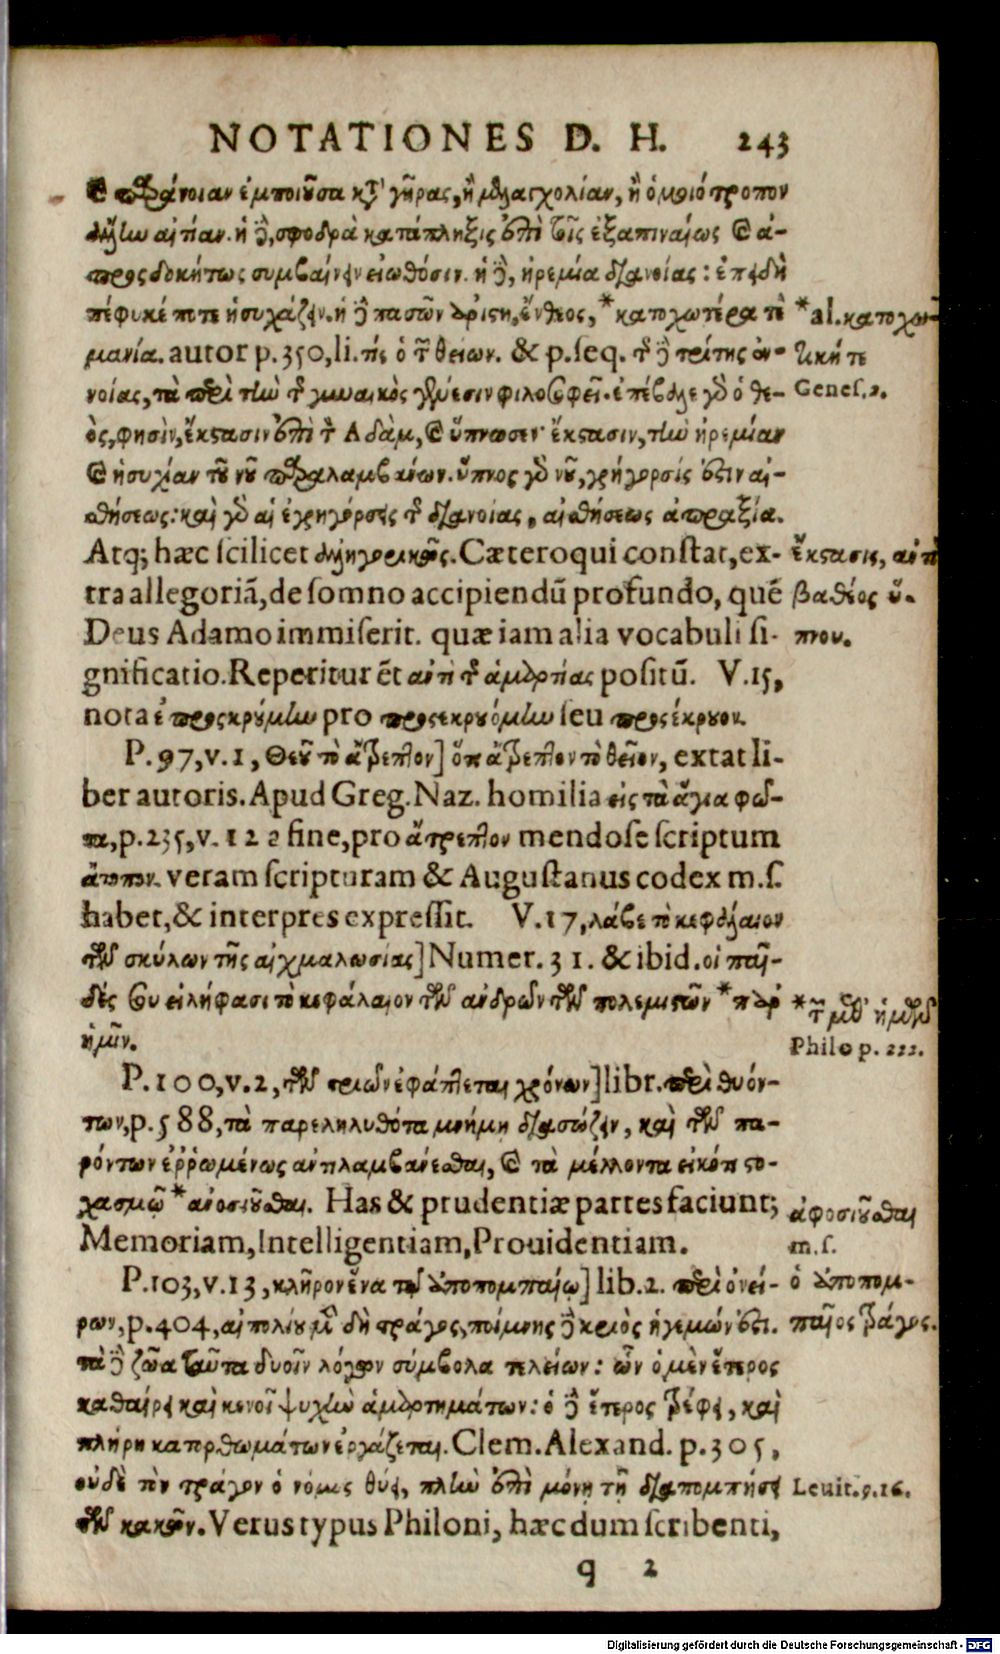 NOTATIONES D. H. 243
ϗ παράνοιαν ἐμποιοῦσα κατὰ γῆρας, ἢ μελαγχολίαν, ἢ ὁμοιότροπον
ἄλλην αἰτίαν. ἡ δὲ, σφοδρὰ κατάπληξις ἐπὶ τοῖς ἐξαπιναίως ϗ ἀ-
προσδοκήτως συμβαίνειν εἰωθόσιν. ἡ δὲ, ἠρεμία διανοίας: ἐπειδὴ
πέφυκέ ποτε ἡσυχάζειν. ἡ δὲ πασῶν ἀρίστη, ἔνθεος, *κατοχωτέρα τὲ
μανία. autor p. 350, li. τίς ὁ τῶν θείων. & p. seq. τῆς δὲ τρίτης ἐν-
νοίας, τὰ περὶ τὴν τῆς γυναικὸς γένεσιν φιλοσοφεῖ. ἐπέβαλε γὰρ ὁ θε-
ὸς, φησὶν, ἔκστασιν ἐπὶ τὸν Αδὰμ, ϗ ὕπνωσεν· ἔκστασιν, τὴν ἠρεμίαν
ϗ ἡσυχίαν τοῦ νοῦ παραλαμβάνων. ὕπνος γὰρ νοῦ, γρήγορσίς ἐστιν αἰ-
σθήσεως: καὶ γὰρ αἱ ἐγρηγόρσεις τῆς διανοίας, αἰσθήσεως ἀπραξία.
Atq; hæc scilicet ἀλληγορικῶς. Cæteroqui constat, ex-
tra allegoriã, de somno accipiendũ profundo, quẽ
Deus Adamo immiserit. quæ iam alia vocabuli si-
gnificatio. Reperitur ẽt ἀντὶ τῆς ἁμαρτίας positũ. V. 15,
nota ἐπροσκρούμην pro προσεκρουόμην seu προσέκρουον.
P. 97, v. 1, Θεοῦ τὸ ἄτρεπτον] ὅτι ἄτρεπτον τὸ θεῖον, extat li-
ber autoris. Apud Greg. Naz. homilia εἰς τὰ ἅγια φῶ-
τα, p. 235, v. 12 a fine, pro ἄτρεπτον mendose scriptum
ἄτοπον. veram scripturam & Augustanus codex m. s.
habet, & interpres expressit. V. 17, λάβε τὸ κεφάλαιον
τῶν σκύλων τῆς αἰχμαλωσίας] Numer. 31. & ibid. οἱ παῖ-
δές σου εἰλήφασι τὸ κεφάλαιον τῶν ἀνδρῶν τῶν πολεμιστῶν *παρ'
ἡμῖν.
P. 100, v. 2, τῶν τριῶν ἐφάπτεται χρόνων] libr. περὶ θυόν-
των, p. 588, τὰ παρεληλυθότα μνήμη διασώζειν, καὶ τῶν πα-
ρόντων ἐῤῥωμένως ἀντιλαμβάνεσθαι, ϗ τὰ μέλλοντα εἰκότι στο-
χασμῷ *ἀνοσιοῦσθαι. Has & prudentiæ partes faciunt;
Memoriam, Intelligentiam, Prouidentiam.
P. 103, v. 13, κλῆρον ἕνα τῷ ἀποπομπαίῳ] lib. 2. περὶ ὀνεί-
ρων, p. 404, αἰπολίου μὲν δὴ τράγος, ποίμνης δὲ κριὸς ἡγεμών ἐστι.
τὰ δὲ ζῶα ταῦτα δυοῖν λόγων σύμβολα τελείων: ὧν ὁ μὲν ἕτερος
καθαίρει καὶ κενοῖ ψυχὴν ἁμαρτημάτων: ὁ δὲ ἕτερος τρέφει, καὶ
πλήρη κατορθωμάτων ἐργάζεται. Clem. Alexand. p. 305,
οὐδὲ τὸν τράγον ὁ νόμος θύει, πλὴν ἐπὶ μόνῃ τῇ διαπομπήσει
τῶν κακῶν. Verus typus Philoni, hæc dum scribenti,
q 2
*al. κατοχω-
τικὴ τε
Genes. 2.
ἔκστασις, ἀντὶ
βαθέος ὕ-
πνου.
*τῶν μεθ' ἡμῶν
Philo p. 222.
ἀφοσιοῦσθαι
m. s.
ὁ ἀποπομ-
παῖος τράγος.
Leuit. 9. 16.
Digitalisierung gefördert durch die Deutsche Forschungsgemeinschaft - DFG